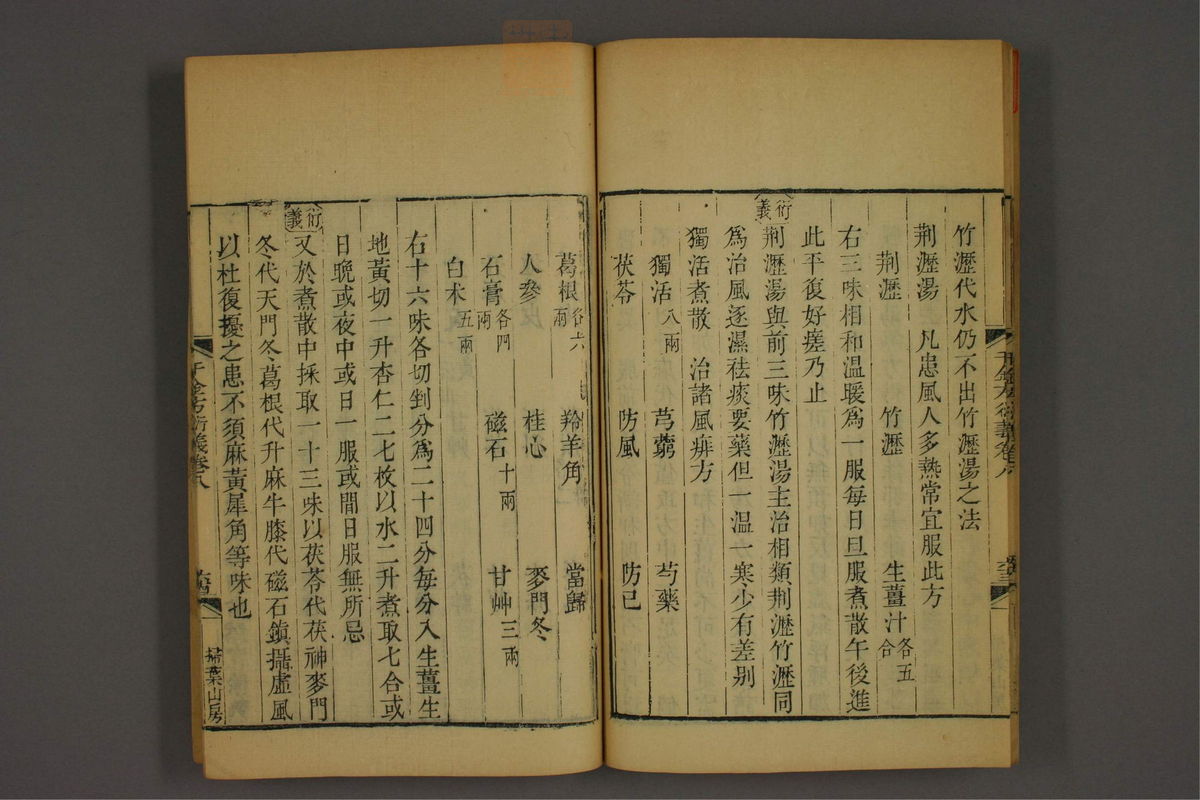 竹瀝代水仍不出竹瀝湯之法
荆瀝湯 凡患風人多熱常宜服此方
荆瀝 竹瀝 生薑汁各五合
右三味相和温暖爲一服每日旦服煮散午後進
此平復好瘥乃止
衍義
荆瀝湯與前三味竹瀝湯主治相類荆瀝竹瀝同
爲治風逐濕祛痰要藥但一温一寒少有差别
獨活煮散 治諸風痱方
獨活八兩 芎藭 芍藥
茯苓 防風 防己
葛根各六兩 羚羊角 當歸
人參 桂心 麥門冬
石膏各四兩 磁石十兩 甘艸三兩
白术五兩
右十六味各切剉分爲二十四分每分入生薑生
地黃切一升杏仁二七枚以水二升煮取七合或
日晚或夜中或日一服或間日服無所忌
衍義
又於煮散中採取一十三味以茯苓代茯神麥門
冬代天門冬葛根代升麻牛膝代磁石鎮攝虛風
以杜復擾之患不須麻黃犀角等味也
千金方衍義卷八
掃葉山房